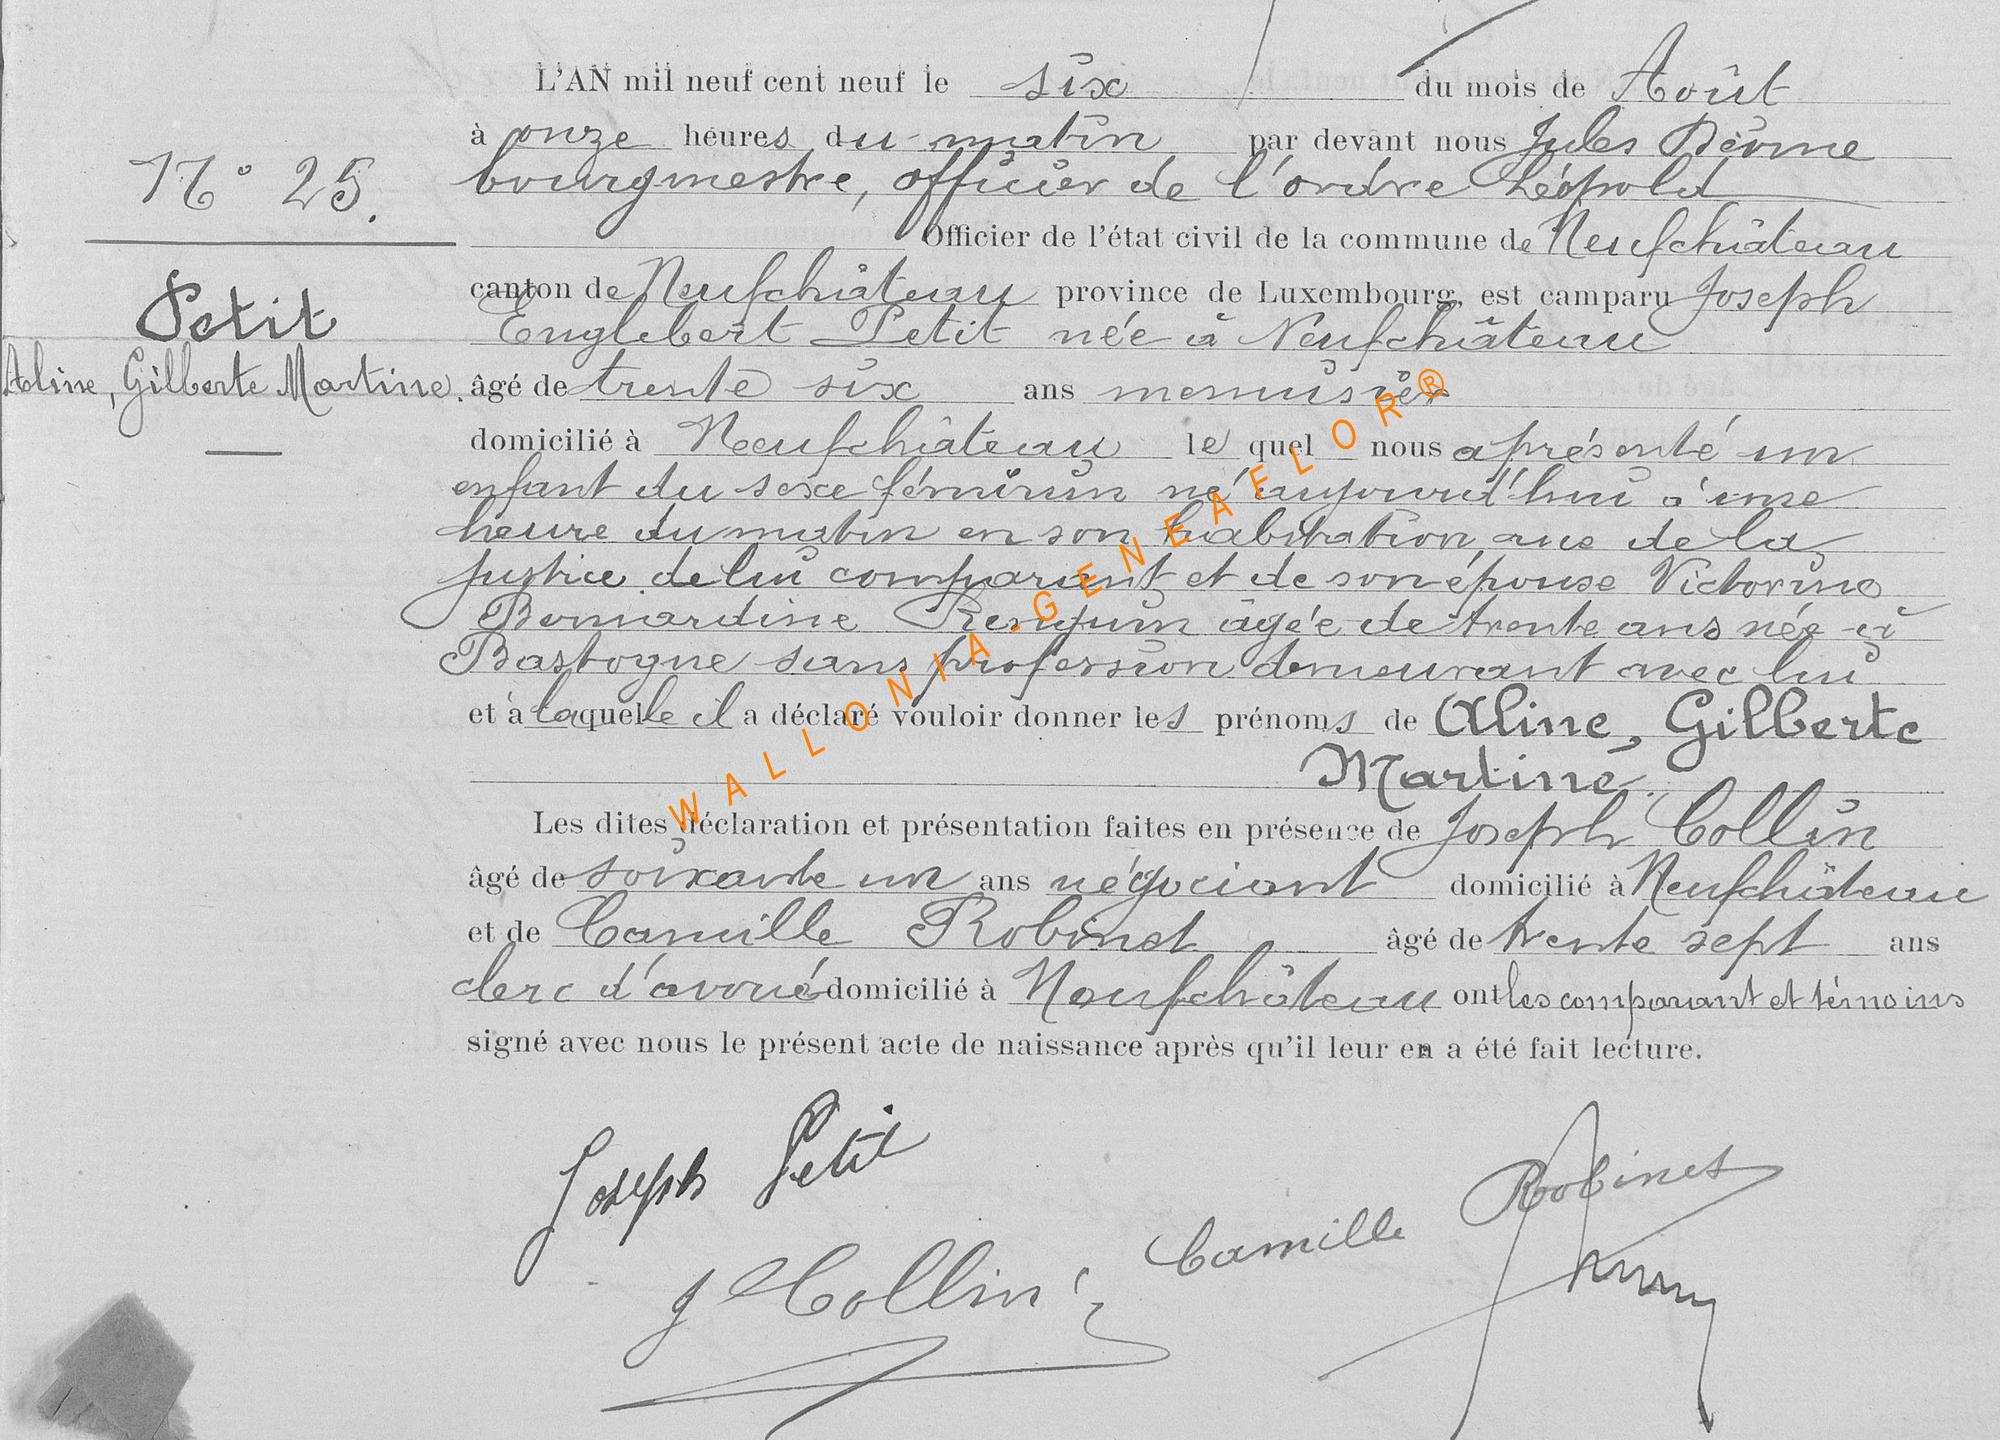 L'AN mil neuf cent neuf le six du mois de Août
à onze heures du matin par devant nous Jules
bourgmestre, officier de l'ordre Léopold
Officier de l'état civil de la commune de Neufchâteau
N° 25.
canton de Neufchâteau province de Luxembourg, est camparu Joseph
Englebert Petit née à Neufchâteau
Petit
Aline, Gilberte Martine.
âgé de trente six ans menuisier
domicilié à Neufchâteau le quel nous a présenté un
enfant du sexe féminin né aujourd'hui à une
heure du matin en son habitation, rue de la
justice de lui comparant et de son épouse Victorine
Bernardine âgée de trente ans née à
Bastogne sans profession demeurant avec lui
et à laquelle il a déclaré vouloir donner les prénoms de Aline, Gilberte
Martine.
Les dites déclaration et présentation faites en présence de Joseph Collin
âgé de soixante un ans négociant domicilié à Neufchâteau
et de Camille Robinet âgé de trente sept ans
clerc d'avoué domicilié à Neufchâteau ont les comparant et témoins
signé avec nous le présent acte de naissance après qu'il leur en a été fait lecture.
Joseph Petit
Camille Robinet
J Collin
WALLONIA-GENEAFLOR®